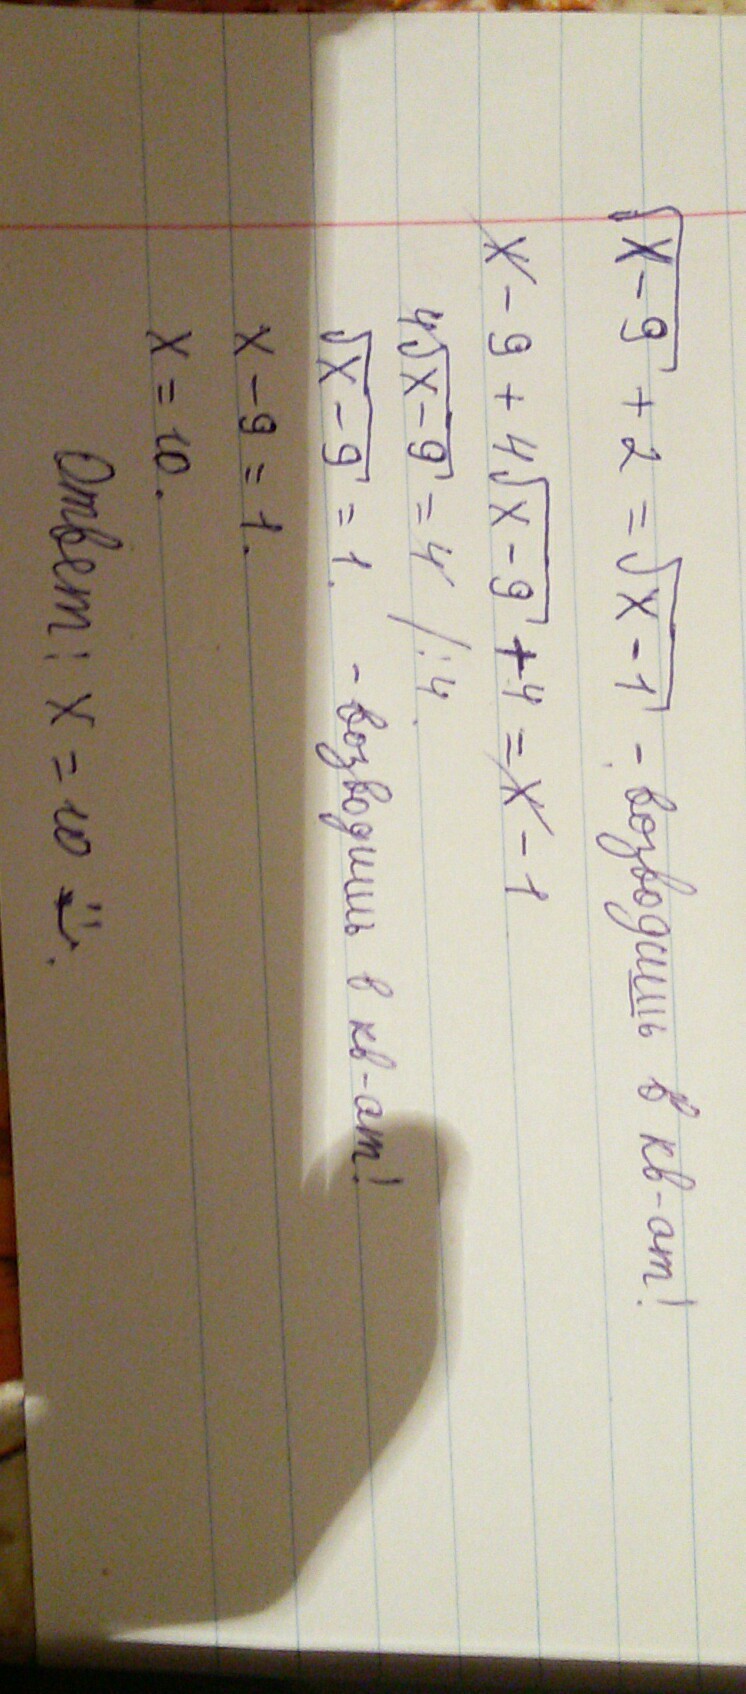 √x-9 + 2 = √x-1 - возводишь в кв-от!
x - 9 + 4√x-9 + 4 = x - 1
4√x-9 = 4 /:4.
√x-9 = 1. - возводишь в кв-от!
x - 9 = 1.
x = 10.
Ответ: x = 10 :).